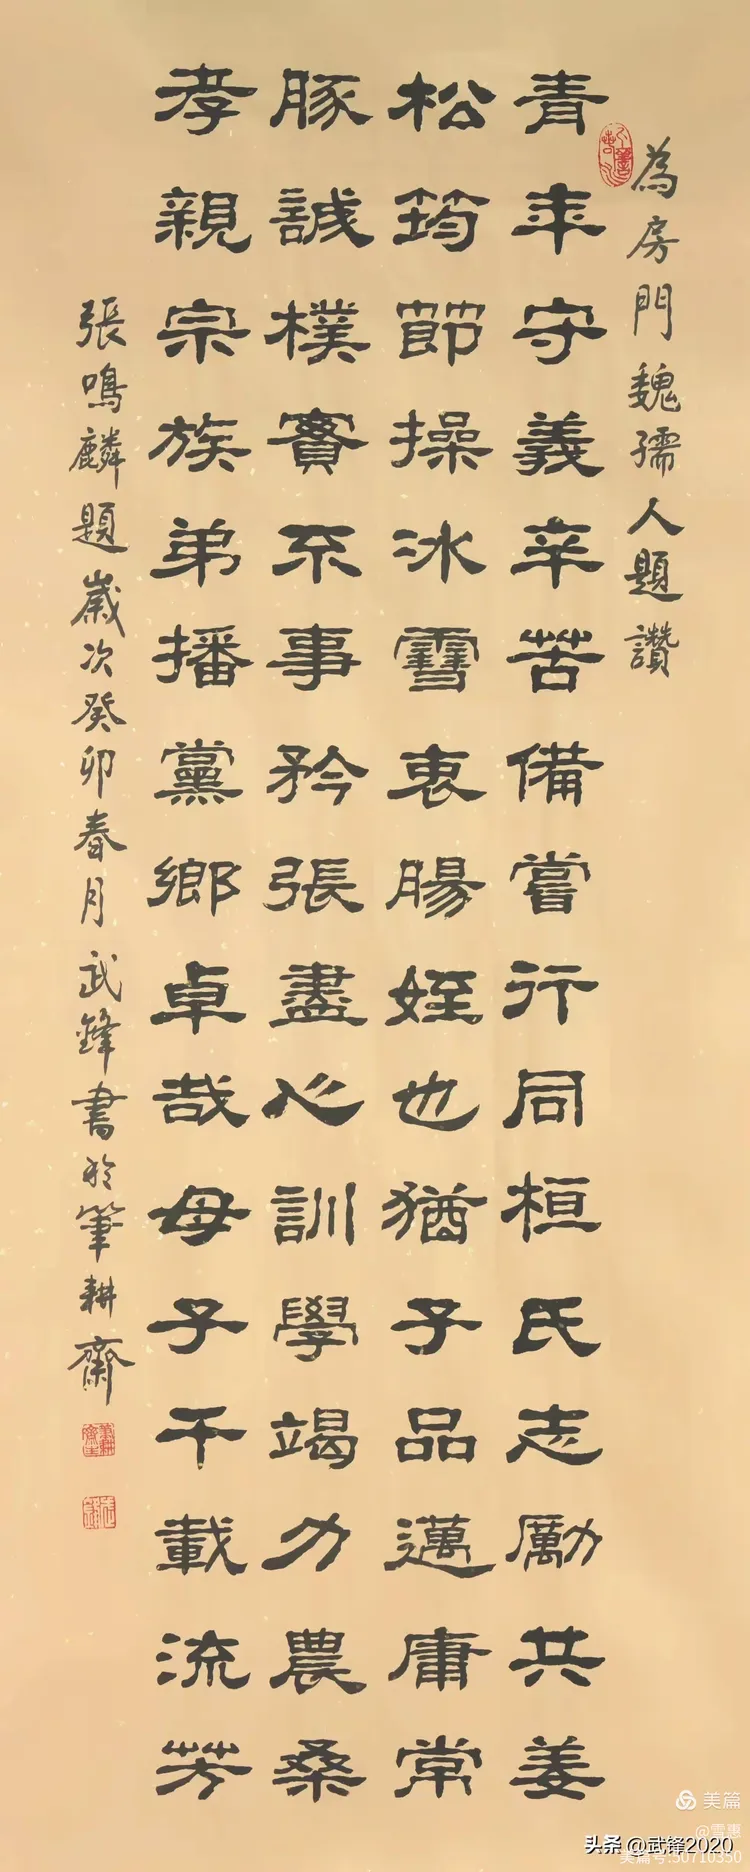 為房門魏孺人題讚
青年守義辛苦備嘗行同桓氏志勵共姜
松筠節操冰雪衷腸姪也猶子品邁庸常
豚誠樸實不事矜張盡心訓學竭力農桑
孝親宗族弟播黨鄉卓哉母子千載流芳
張鳴麟題歲次癸卯春月武鋒書於筆耕齋
美篇
@雪惠
头条 @武锋2020
美篇号:50710350